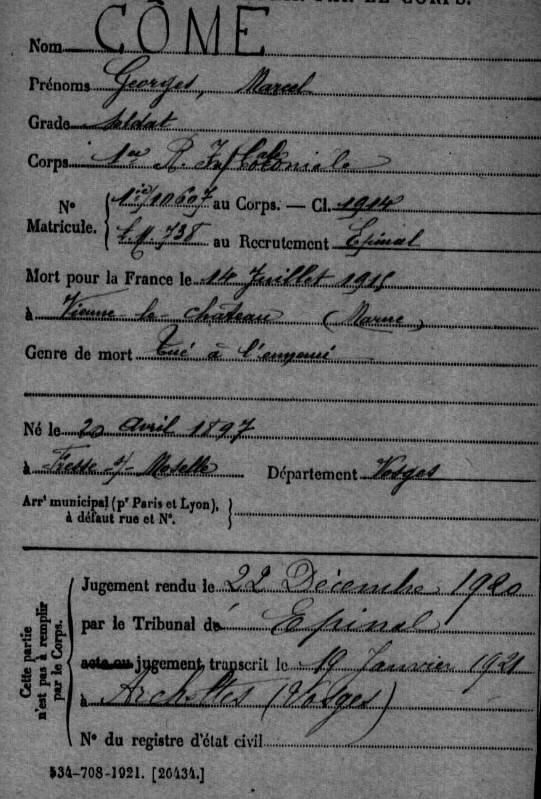 PAR LE CORPS.
Nom CÔME
Prénoms Georges, Marcel
Grade soldat
Corps 1er R. Inf Coloniale
N° Matricule. { 10607 au Corps. — Cl. 1914
738 au Recrutement Epinal
Mort pour la France le 14 Juillet 1915
à Vienne-le-château (Marne)
Genre de mort Tué à l'ennemi
Né le 20 Avril 1897
à Fresse s/ Moselle Département Vosges
Arrt municipal (pr Paris et Lyon), }
à défaut rue et N°.
Cette partie n'est pas à remplir par le Corps.
Jugement rendu le 22 Décembre 1920
par le Tribunal de Epinal
acte ou jugement transcrit le 19 Janvier 1921
à Archettes (Vosges)
N° du registre d'état civil
534-708-1921. [26434.]